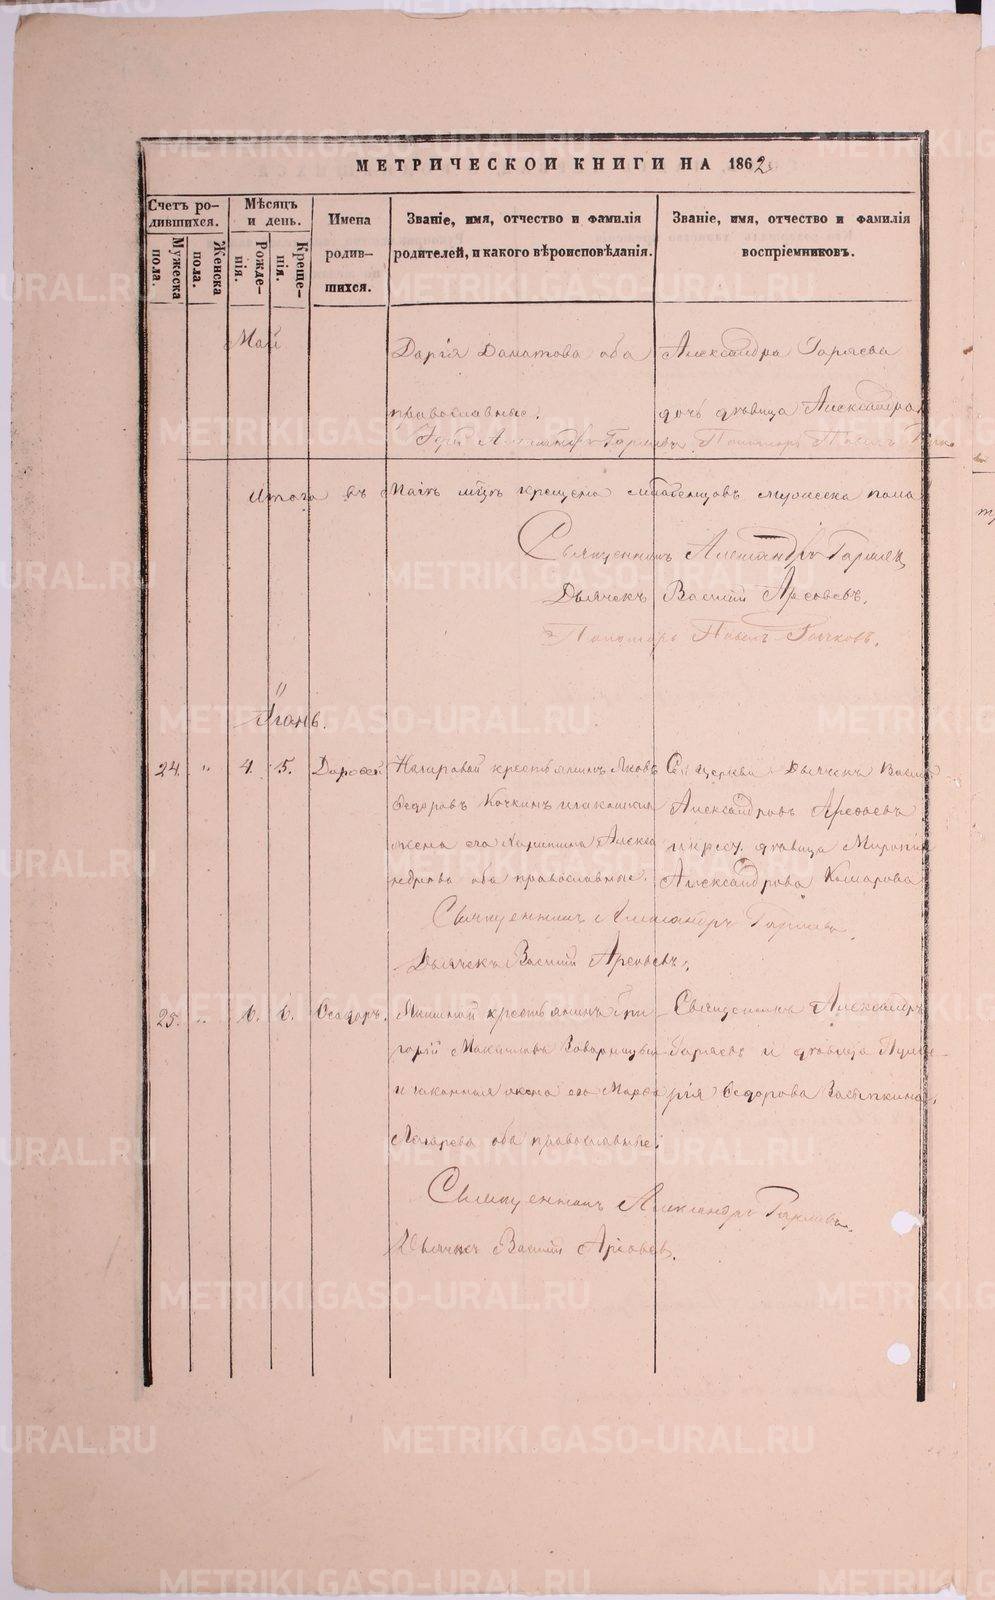 МЕТРИЧЕСКОЙ КНИГИ НА 1862
Счетъ ро-
дившихся.
Мужеска пола.
Женска пола.
Мѣсяцъ
и день.
Рожде-
нія.
Креще-
нія.
Имена
родив-
шихся.
Званіе, имя, отчество и фамилія
родителей, и какого вѣроисповѣданія.
Званіе, имя, отчество и фамилія
воспріемниковъ.
Май
Дарія Даматова оба
православные.
Александра Гаряева
дочь дѣвица Александра
Александръ Гаряевъ Пономарь Павелъ
Итого въ Маiѣ крещено младенцовъ мужеска пола
Священникъ Александръ Гаряевъ
Дьячекъ Василій Арефьевъ.
Пономарь Павелъ Рычковъ.
Іюнь.
24. " 4. 5. Дорофей
крестьянинъ Яковъ
Федоровъ Кочкинъ и законная
жена его Харитина Алекса
ндрова оба православные.
церкви Дьячекъ Васил
Александровъ Арефьевъ
и крест. дѣвица
Александрова Комарова
Священникъ Александръ Гаряевъ.
Дьячекъ Василій Арефьевъ.
25. " 6. 6. Ѳеодоръ.
крестьянинъ Гри
горій
и законная жена его Марѳа
оба православные.
Священникъ Александръ
Гаряевъ и дѣвица
Ѳедорова
Священникъ Александръ Гаряевъ.
Дьячекъ Василій Арефьевъ.
METRIKI.GASO-URAL.RU